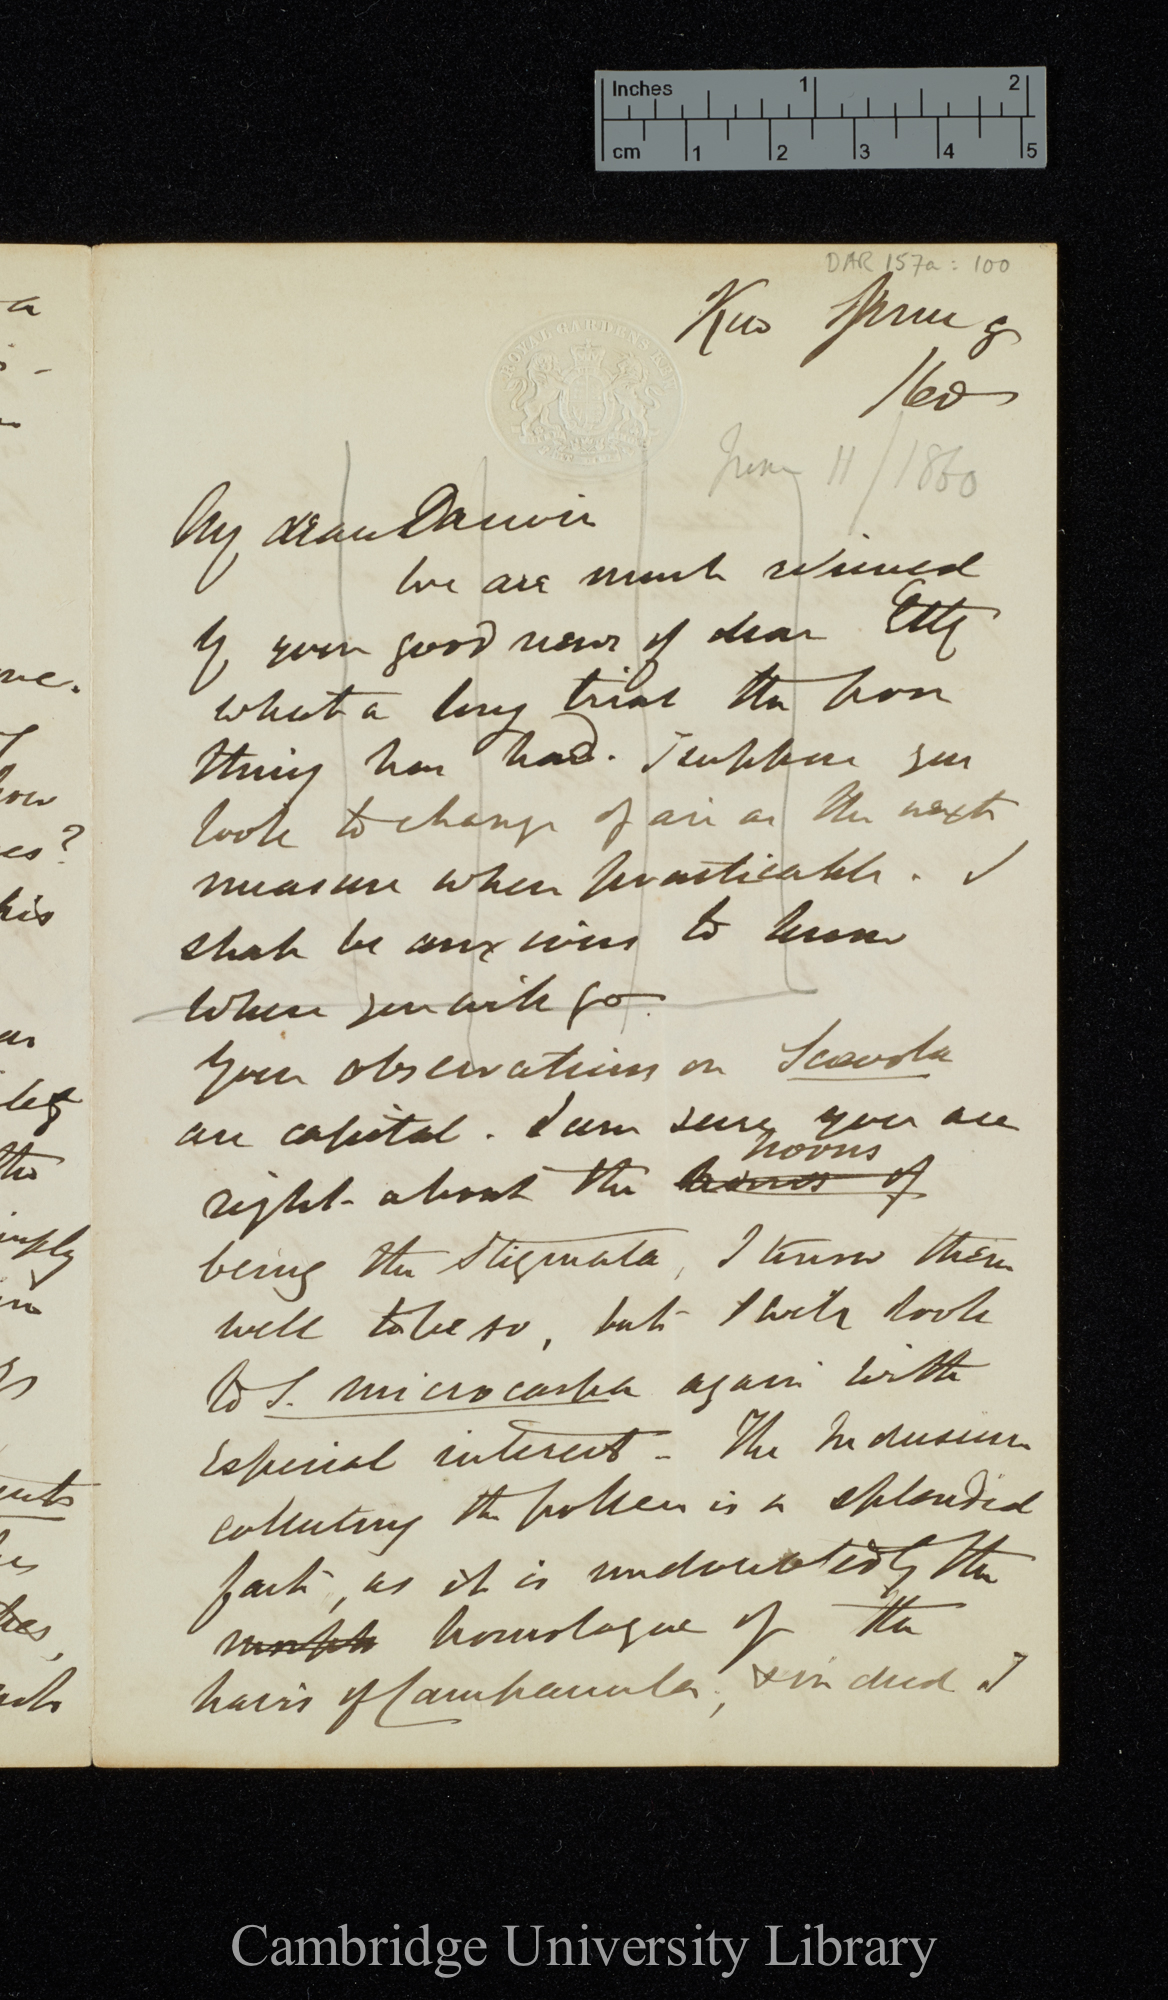 Inches 1 2
cm 1 2 3 4 5
DAR 157a: 100
Kew
/60
June 11/1860
My dear Darwin
We are much relieved
by your good news of dear Etty
what a long trial the poor
thing has had. I suppose you
look to change of air as the next
measure when practicable. I
shall be anxious to know
where you will go.
Your observations on Scævola
are capital. I am sure you are
horns
right about the horns of
being the Stigmata, I know them
well to be so, but I will look
to S. microcarpa again with
especial interest – The Indusium
collecting the pollen is a splendid
fact, as it is undoubtedly the
morph homologue of the
hairs of Campanula, & indeed I
Cambridge University Library